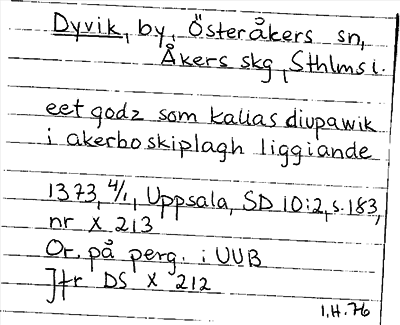 Dyvik, by, Österåkers sn,
Åkers skg, Sthlms l.
eet godz som kallas diupawik
i akerbo skiplagh liggiande
1373, 4/1, Uppsala, SD 10:2, s. 183,
nr X 213
Or. på perg. i UUB
Jfr DS X 212
1.H.76